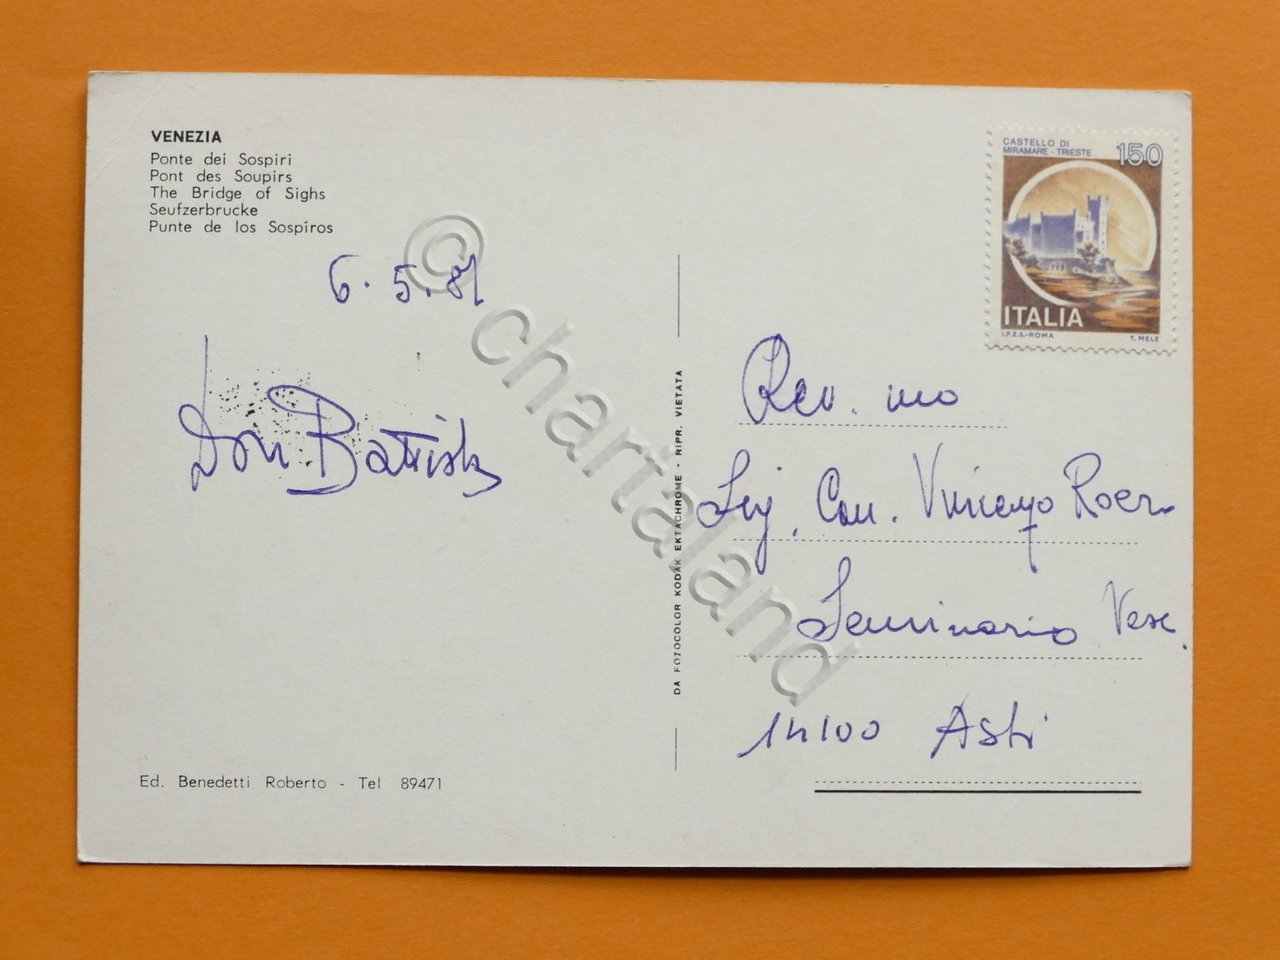 VENEZIA
Ponte dei Sospiri
Pont des Soupirs
The Bridge of Sighs
Seufzerbrucke
Punte de los Sospiros
6. 5. 81
Don Battista
Ed. Benedetti Roberto - Tel 89471
DA FOTOCOLOR KODAK EKTACHROME - RIPR. VIETATA
CASTELLO DI
MIRAMARE - TRIESTE
150
ITALIA
I.P.Z.S.-ROMA T. MELE
Rev. mo
Sig. Can. Vincenzo Roero
Seminario Vesc.
14100 Asti
© chartaland